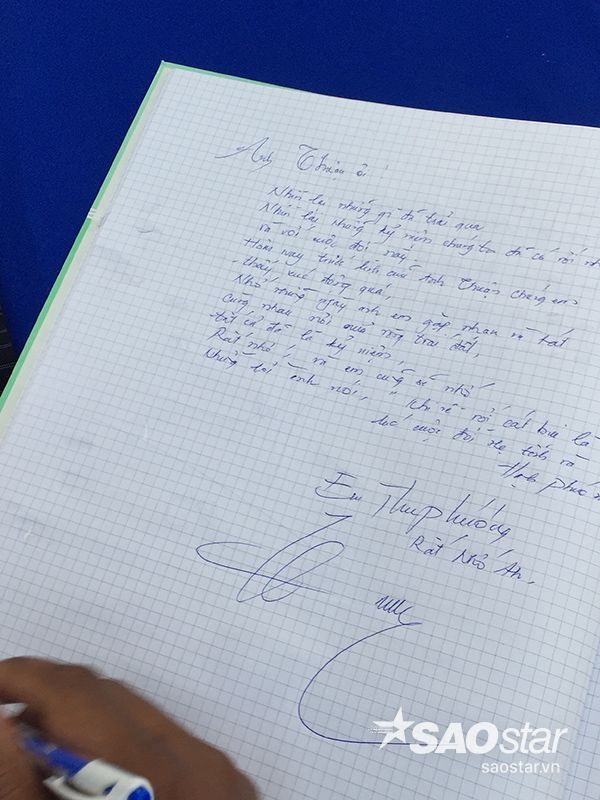 Anh Thuận ơi
Nhớ lại những gì đã trải qua
Nhớ lại những kỷ niệm chúng ta đã có rồi
ra với cuộc đời này.
Hôm nay trước linh cửu anh Thuận chúng em
thấy xúc động quá,
Nhớ những ngày anh em gặp nhau và hát
cùng nhau mỗi trái đất,
tất cả đã là kỷ niệm,
Rất nhớ, và em cũng sẽ nhớ
những lời anh nói, " khi về với cát bụi là
lúc cuộc đời nhẹ tênh và
Hạnh phúc
Em Thu Phương
Rất Nhớ Anh,
SAOstar
saostar.vn